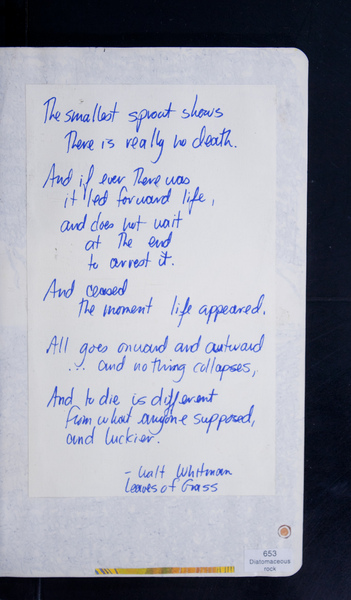 The smallest sprout shows
There is really no death.
And if ever there was
it led forward life,
and does not wait
at the end
to arrest it.
And ceased
the moment life appeared.
All goes onward and outward
... and nothing collapses,
And to die is different
from what anyone supposed,
and luckier.
- Walt Whitman
Leaves of Grass
653
Diatomaceous
rock